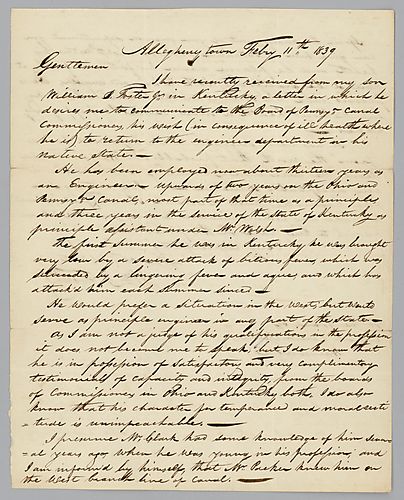 Allegheny town Feby 11th 1839
Gentlemen
I have recently received from my son
William B. Foster Jr in Kentucky a letter in which he
desires me to communicate to the Board of Pennsa Canal
Commissioners, his wish (in consequence of ill health where
he is) to return to the engineer department in his
native State —
He has been employed now about thirteen years as
an Engineer — Upwards of two years on the Ohio and
Pennsa Canal, most part of that time as a principle,
and three years in the service of the State of Kentucky as
principle assistant under Mr. Welsh. —
The first Summer he was in Kentucky he was brought
very low by a severe attack of bilious fever, which was
succeeded by a lingering fever and ague, and which has
attack'd him each Summer since —
He would prefer a situation in the West, but would
serve as principle engineer in any part of the State —
As I am not a judge of his qualifications in the profession
it does not become me to speak, but I do know that
he is in possession of satisfactory and very complimentary
testimonials of capacity and integrity, from the boards
of Commissioners in Ohio and Kentucky both, I do also
know that his character for temperance and moral recti
= tude is unimpeachable. —
I presume Mr. Clark has some knowledge of him sever
= al years ago, when he was young in his profession, and
I am informed by himself that Mr. Packer knew him on
the West branch line of Canal. —